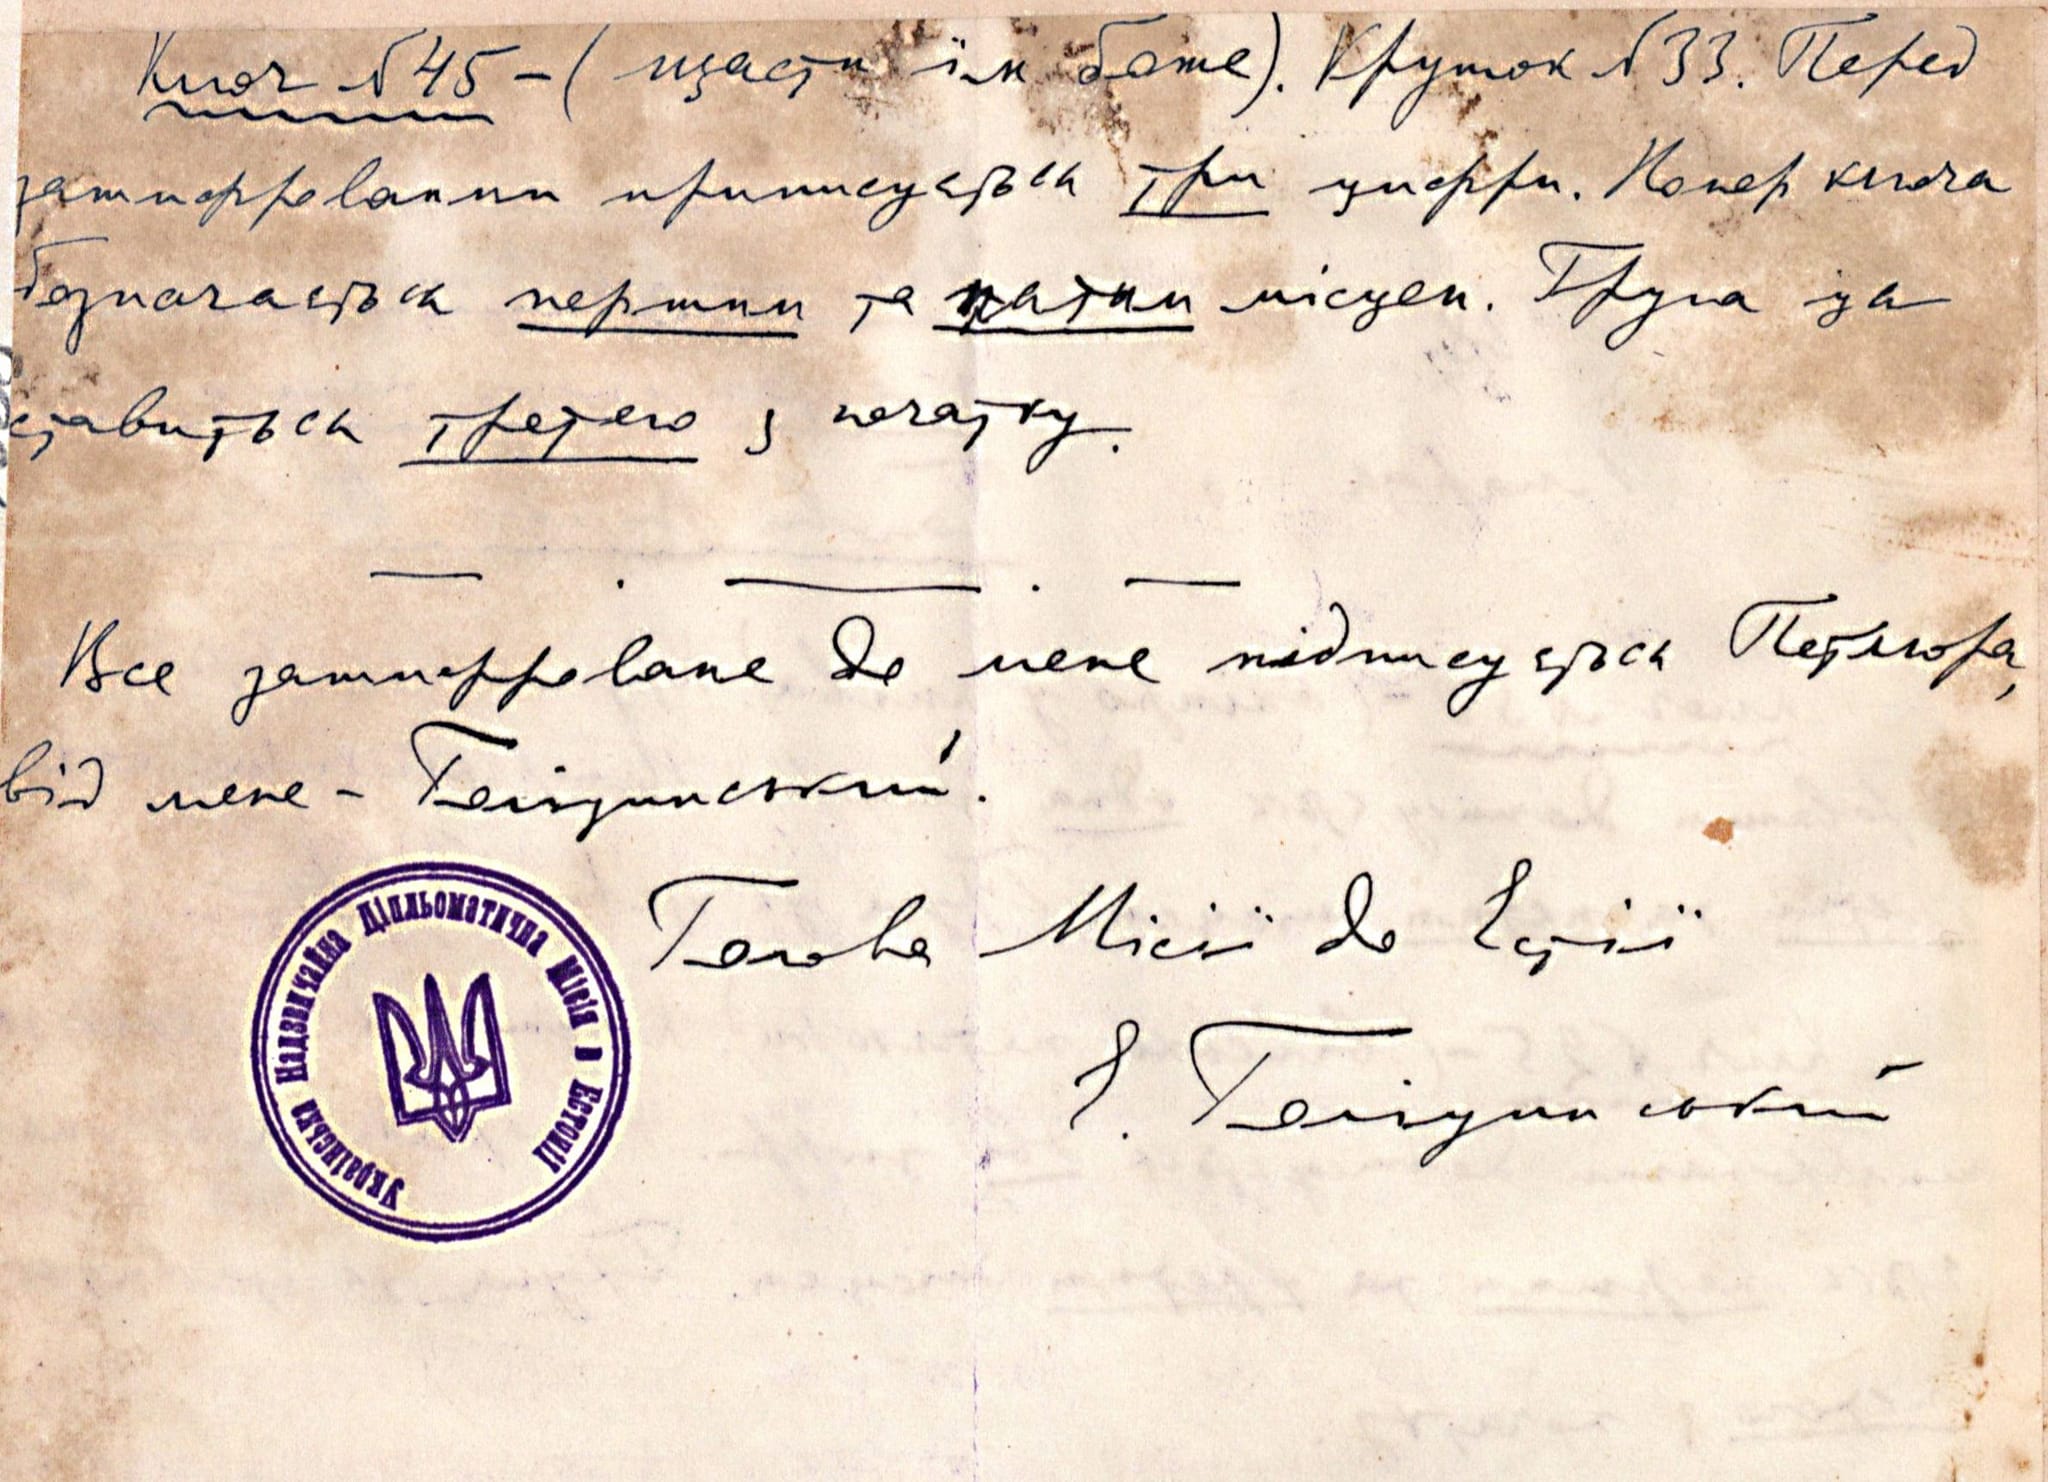 Ключ №45 – ( щасти їм боже). Кружок №33. Перед
зашифрованим приписується три цифри. Номер ключа
визначається першим та пятим місцем. Група ця
ставиться третею з початку.
Все зашифроване до мене підписується Петлюра,
від мене – Голіцинський.
Голова Місії до Естії
Є. Голіцинський
Українська Надзвичайна Діпльоматична Місія в Естонії